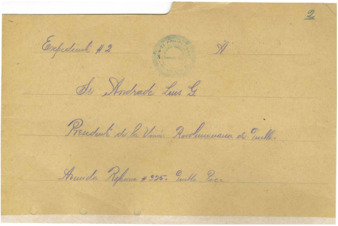 2
Expediente #2 A
Sr Andrade Luis G
Presidente de la Unión Revolucionaria de Puebla.
Avenida Reforma # 325. Puebla Pue.